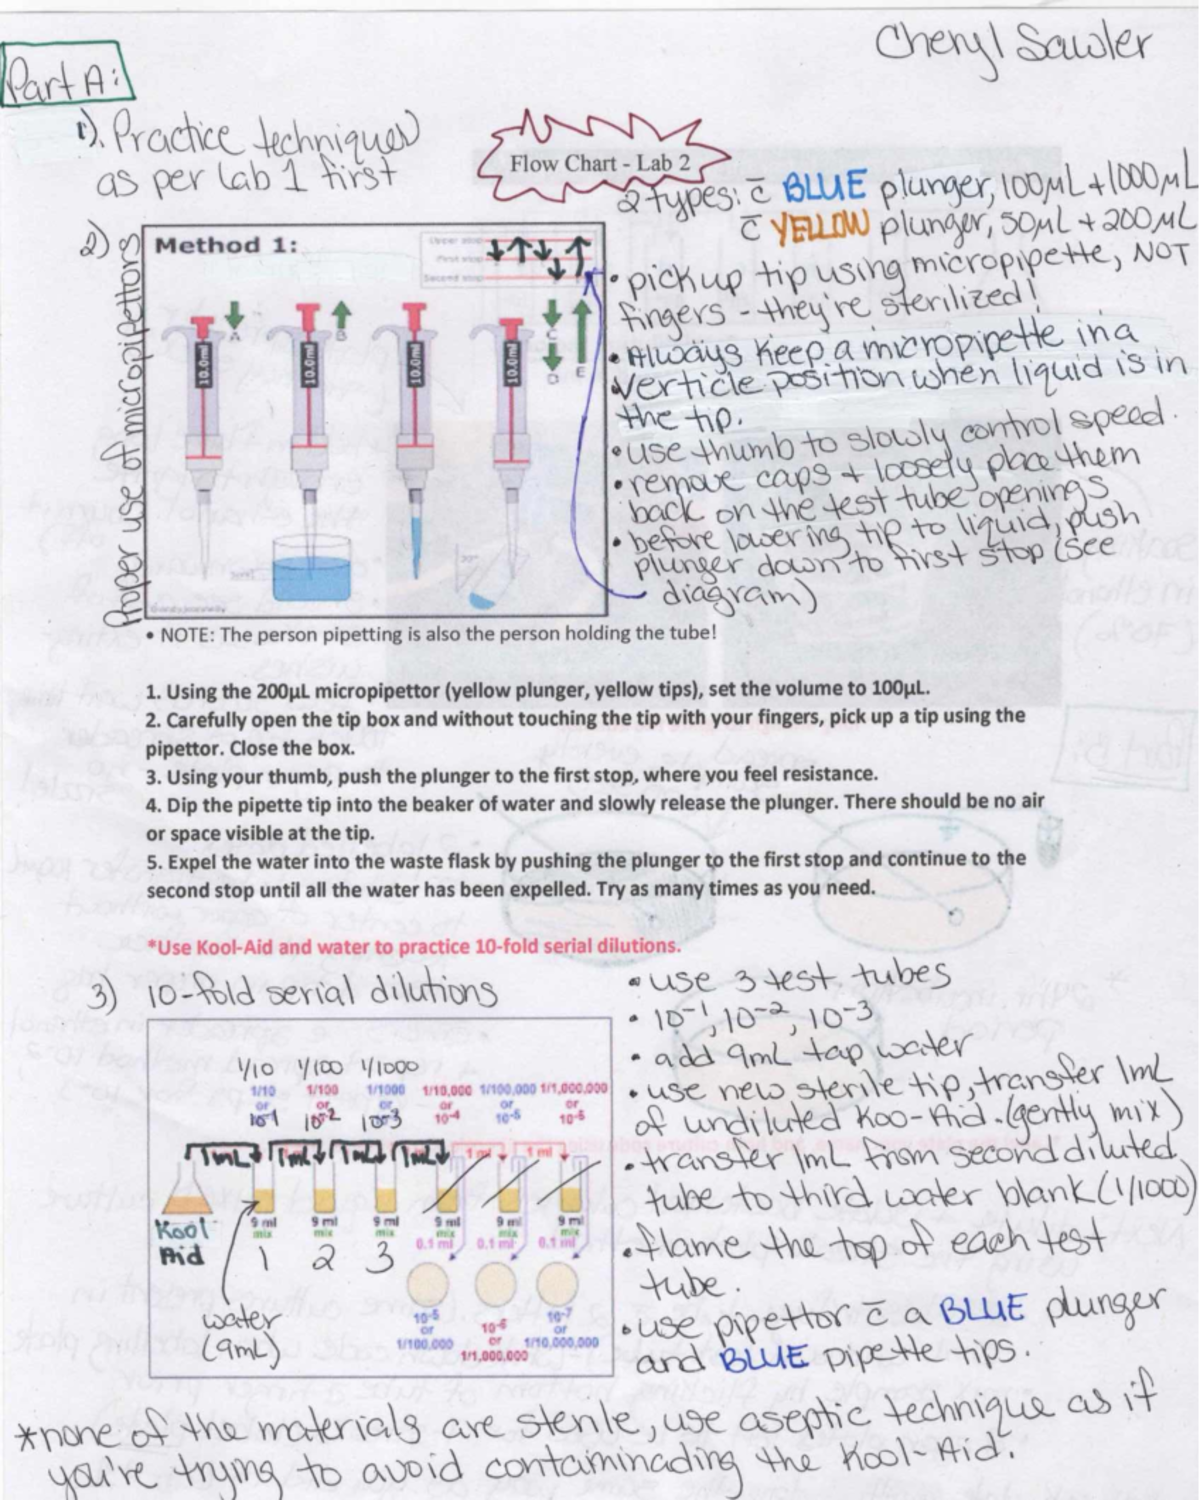 Cheryl Sawler
Part A:
1). Practice techniques
as per Lab 1 first
Flow Chart - Lab 2
2 types: c̄ BLUE plunger, 100μL + 1000μL
c̄ YELLOW plunger, 50μL + 200μL
2) Proper use of micropipettors
Method 1:
Upper stop
First stop
Second stop
A
B
C
D
E
10.0ml
10.0ml
10.0ml
10.0ml
• pick up tip using micropipette, NOT
fingers - they're sterilized!
• Always keep a micropipette in a
verticle position when liquid is in
the tip.
• use thumb to slowly control speed.
• remove caps + loosely place them
back on the test tube openings
• before lowering tip to liquid, push
plunger down to first stop (see
diagram)
• NOTE: The person pipetting is also the person holding the tube!
1. Using the 200μL micropipettor (yellow plunger, yellow tips), set the volume to 100μL.
2. Carefully open the tip box and without touching the tip with your fingers, pick up a tip using the
pipettor. Close the box.
3. Using your thumb, push the plunger to the first stop, where you feel resistance.
4. Dip the pipette tip into the beaker of water and slowly release the plunger. There should be no air
or space visible at the tip.
5. Expel the water into the waste flask by pushing the plunger to the first stop and continue to the
second stop until all the water has been expelled. Try as many times as you need.
*Use Kool-Aid and water to practice 10-fold serial dilutions.
3) 10-fold serial dilutions
1/10 1/100 1/1000
1/10 1/100 1/1000 1/10,000 1/100,000 1/1,000,000
or or or or or or
10-1 10-2 10-3 10-4 10-5 10-6
1mL 1mL 1mL 1mL 1 ml 1 ml
Kool
Aid
9 ml 9 ml 9 ml 9 ml 9 ml 9 ml
mix mix mix mix mix mix
0.1 ml 0.1 ml 0.1 ml
1 2 3
water
(9mL)
10-5 10-6 10-7
or or or
1/100,000 1/1,000,000 1/10,000,000
• use 3 test tubes
• 10-1, 10-2, 10-3
• add 9mL tap water
• use new sterile tip, transfer 1mL
of undiluted Koo-Aid. (gently mix)
• transfer 1mL from second diluted
tube to third water blank (1/1000)
• flame the top of each test
tube.
• use pipettor c̄ a BLUE plunger
and BLUE pipette tips.
*none of the materials are sterile, use aseptic technique as if
you're trying to avoid contaminading the Kool-Aid.